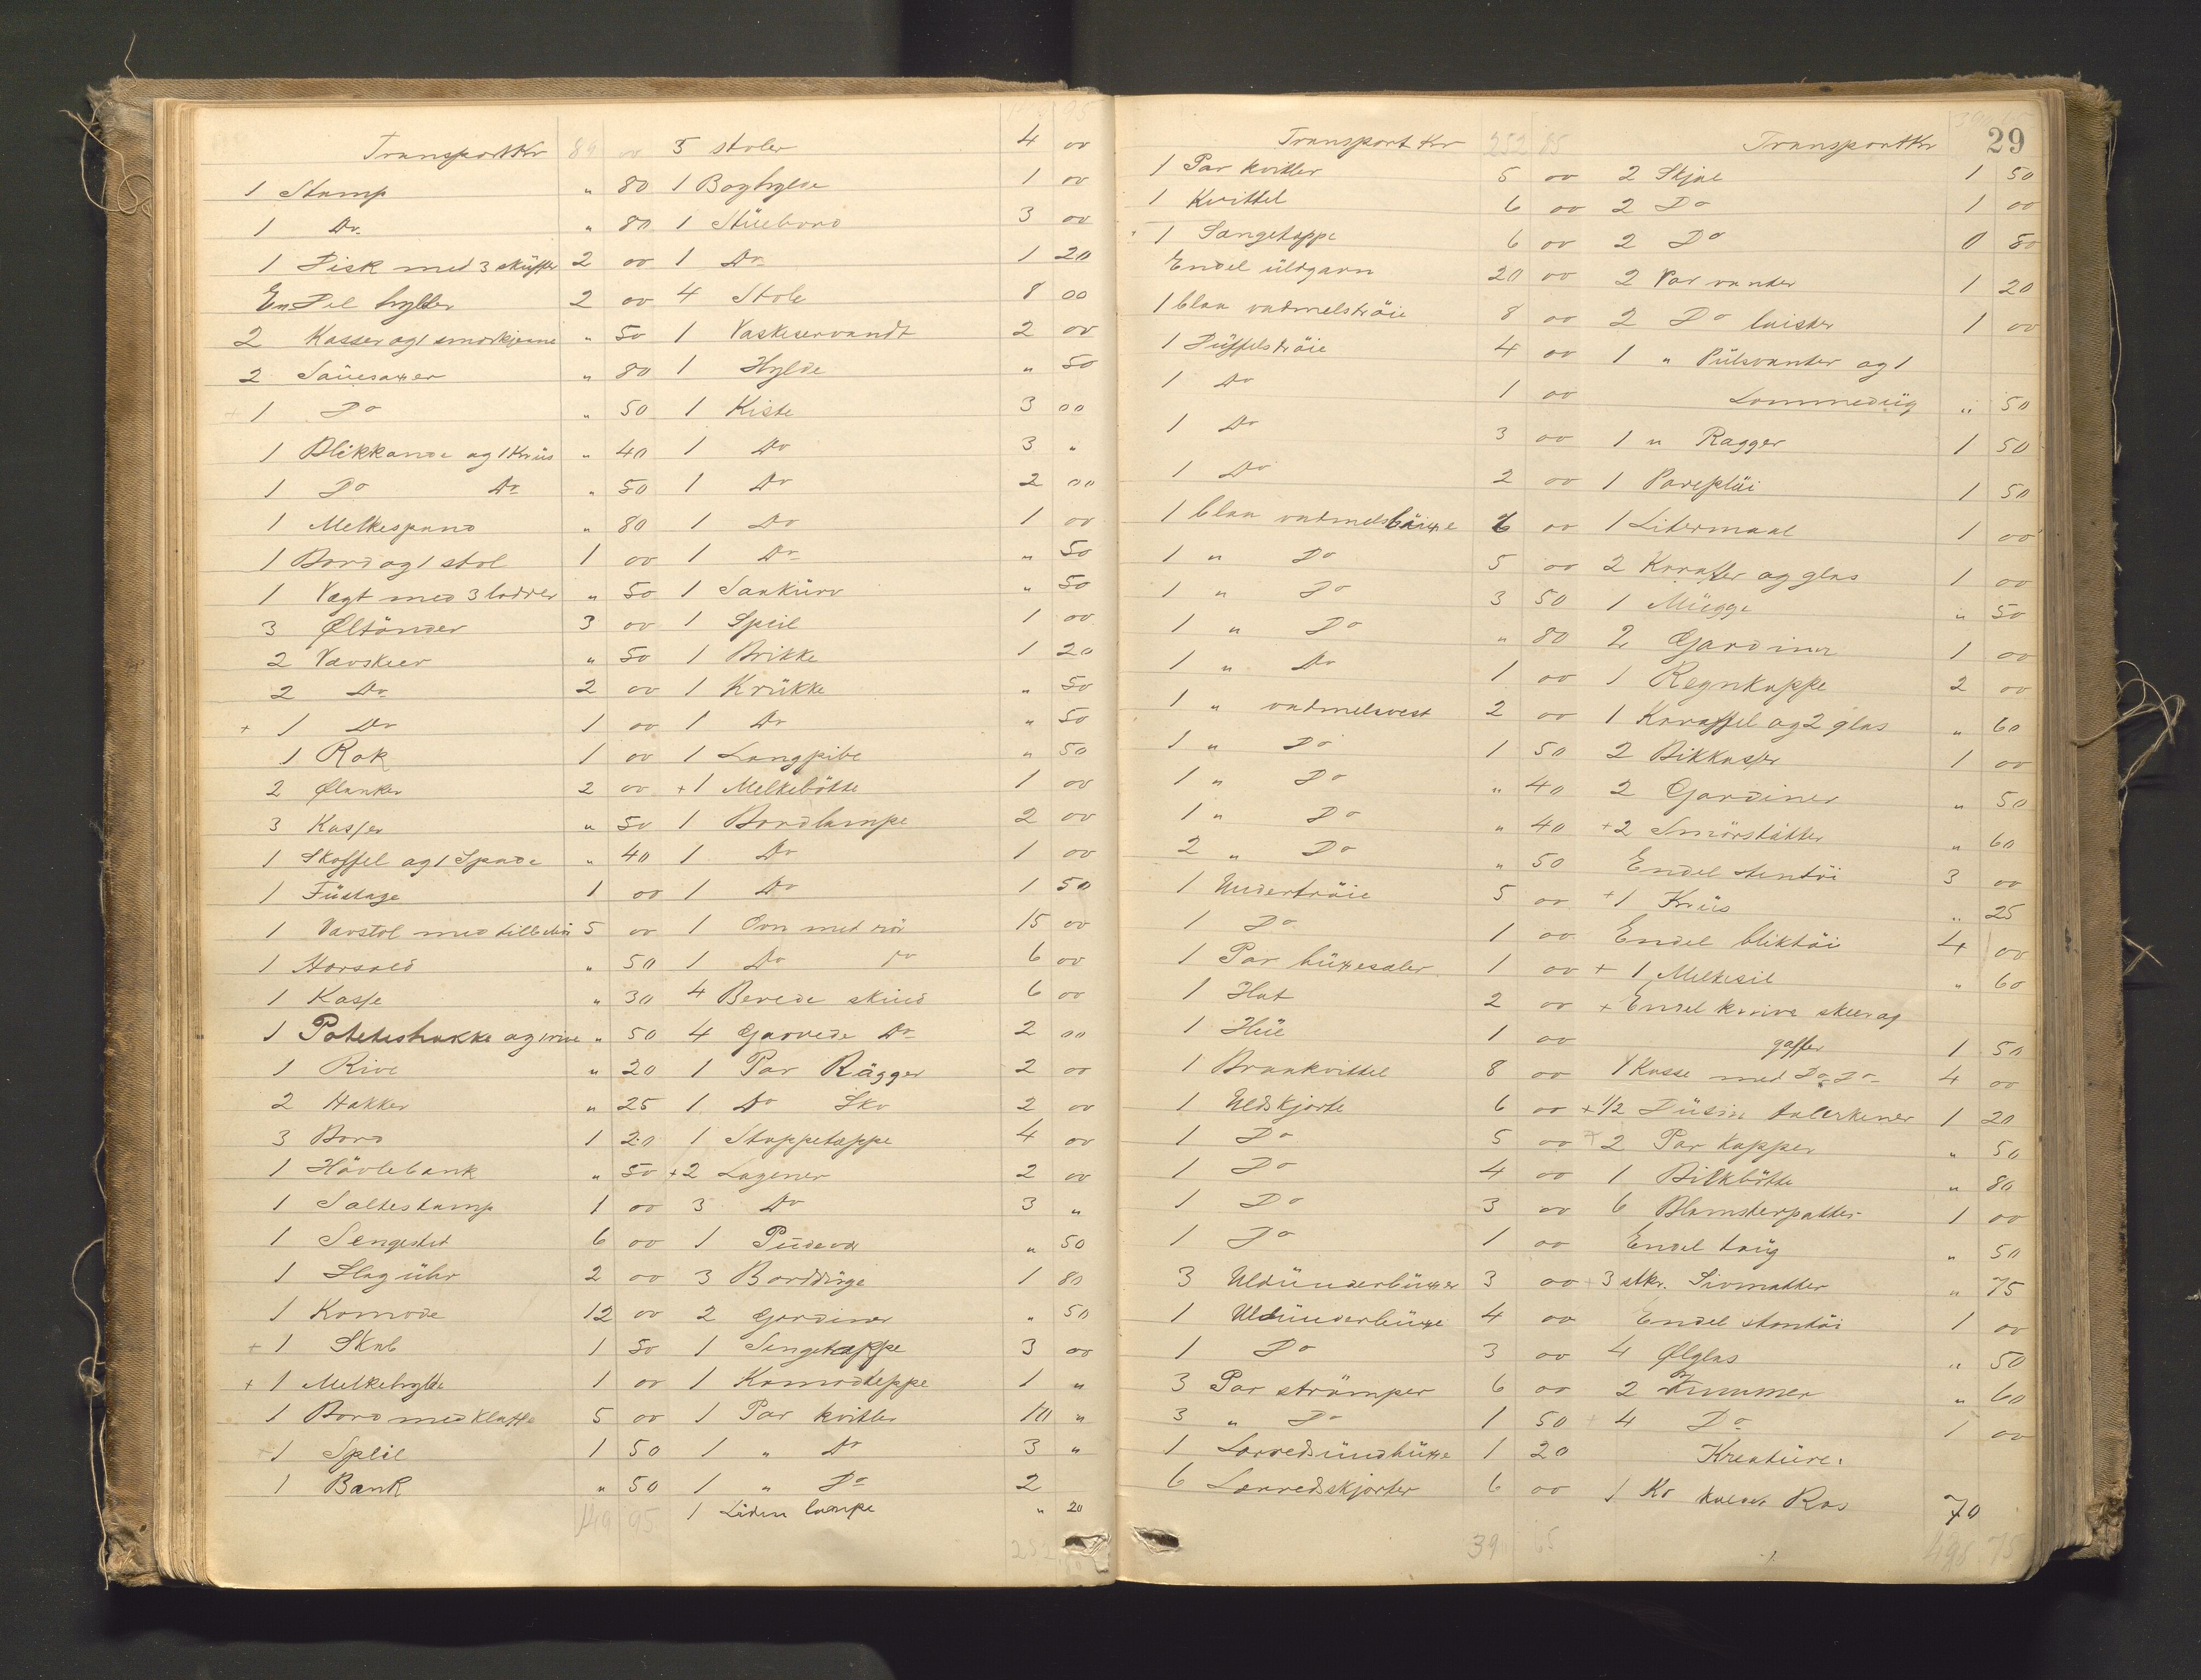 Transport Kr 89 00
1 Stamp " 80
1 Do " 80
1 Disk med 3 skuffer 2 00
En Del hylder 2 00
2 Kasser og 1 smørkjerne " 50
2 Sauesaxer " 80
+ 1 Do " 50
1 Blikkande og 1 Krus " 40
1 Do Do " 50
1 Melkespand " 80
1 Bord og 1 stol 1 00
1 Vægt med 3 lodder " 50
3 Øltönder 3 00
2 Vævskeer " 50
2 Do 2 00
+ 1 Do 1 00
1 Rok 1 00
2 Ølanker 2 00
3 Kasser " 50
1 Skoffel og 1 Spade " 40
1 Fustage 1 00
1 Vævstol med tilbehør 5 00
1 Horsold " 50
1 Kasse " 30
1 Poteteshakke og " 50
1 Rive " 20
2 Hakker " 25
3 Bord 1 20
1 Hövlebank " 50
1 Saltestamp 1 00
1 Sengested 6 00
1 Slaguhr 2 00
1 Komode 12 00
+ 1 Skab 1 50
+ 1 Melkehylde 1 00
1 Bord med Klaffe 5 00
+ 1 Speil 1 50
1 Bank " 50
149 95
5 stoler 4 00
1 Boghylde 1 00
1 Stuebord 3 00
1 Do 1 20
4 Stole 8 00
1 Vaskeservandt 2 00
1 Hylde " 50
1 Kiste 3 00
1 Do 3 "
1 Do 2 00
1 Do 1 00
1 Do " 50
1 Sankurv " 50
1 Speil 1 00
1 Brikke 1 20
1 Krukke " 50
1 Do " 50
1 Langpibe " 50
+ 1 Melkebötte 1 00
1 Bordlampe 2 00
1 Do 1 00
1 Do 1 50
1 Ovn med rör 15 00
1 Do Do 6 00
4 Berede skind 6 00
4 Garvede Do 2 00
1 Par Rägger 2 00
1 Do Sko 2 00
1 Stoppetæppe 4 00
+ 2 Lagener 2 00
3 Do 3 "
1 Pudevar " 50
3 Borddüge 1 80
2 Gardiner " 50
1 Sengetæppe 3 00
1 Komodteppe 1 "
1 Par kvitler 10 "
1 " Do 3 "
1 " Do 2
1 Liden lampe " 20
252
Transport Kr 252 85
1 Par kvitler 5 00
1 Kvittel 6 00
1 Sengetæppe 6 00
Endel uldgarn 20 00
1 blaa vadmelströie 8 00
1 Düffelströie 4 00
1 Do 1 00
1 Do 3 00
1 Do 2 00
1 blaa vadmelsbuxe 6 00
1 " Do 5 00
1 " Do 3 50
1 " Do " 80
1 " Do 1 00
1 " vadmelsvest 2 00
1 " Do 1 50
1 " Do " 40
1 " Do " 40
2 " Do " 50
1 Undertröie 5 00
1 Do 1 00
1 Par buxesæler 1 00
1 Hat 2 00
1 Hue 1 00
1 Brunkvittel 8 00
1 Uldskjorte 6 00
1 Do 5 00
1 Do 4 00
1 Do 3 00
1 Do 1 00
3 Uldunderbuxer 3 00
1 Uldunderbuxe 4 00
1 Do 3 00
3 Par strömper 6 00
3 " Do 1 50
1 Lærredsundbuxe 1 20
6 Lærredsskjorter 6 00
39 65
29
Transport Kr
2 Skjæl 1 50
2 Do 1 00
2 Do 0 80
2 Par vanter 1 20
2 Do laister 1 00
1 " Pulsvanter og 1
Lommedüg " 50
1 " Ragger 1 50
1 Parepläi 1 50
1 Litermaal 1 00
2 Karafler og glas 1 00
1 Mugge " 50
2 Gardiner 1 00
1 Regnkappe 2 00
1 Karaffel og 2 glas " 60
2 Blikkasser 1 00
2 Gardiner " 50
+ 2 Smörstötter " 60
Endel stentöi 3 00
+ 1 Krus " 25
Endel bliktöi 4 00
+ 1 Melkesil " 60
+ Endel knive skeer og
gafler 1 50
1 Kasse med Do Do 4 00
+ 1/2 Düsin talerkener 1 20
+ 2 Par Kopper " 50
1 Blikbötte " 80
6 Blomsterpotter 1 00
Endel taug " 50
+ 3 stkr. Sivmatter " 75
Endel stentöi 1 00
4 Ølglas " 50
2 " 60
+ 4 Do 1 00
Kreature:
1 Ko kaldet Ros 70
498 75